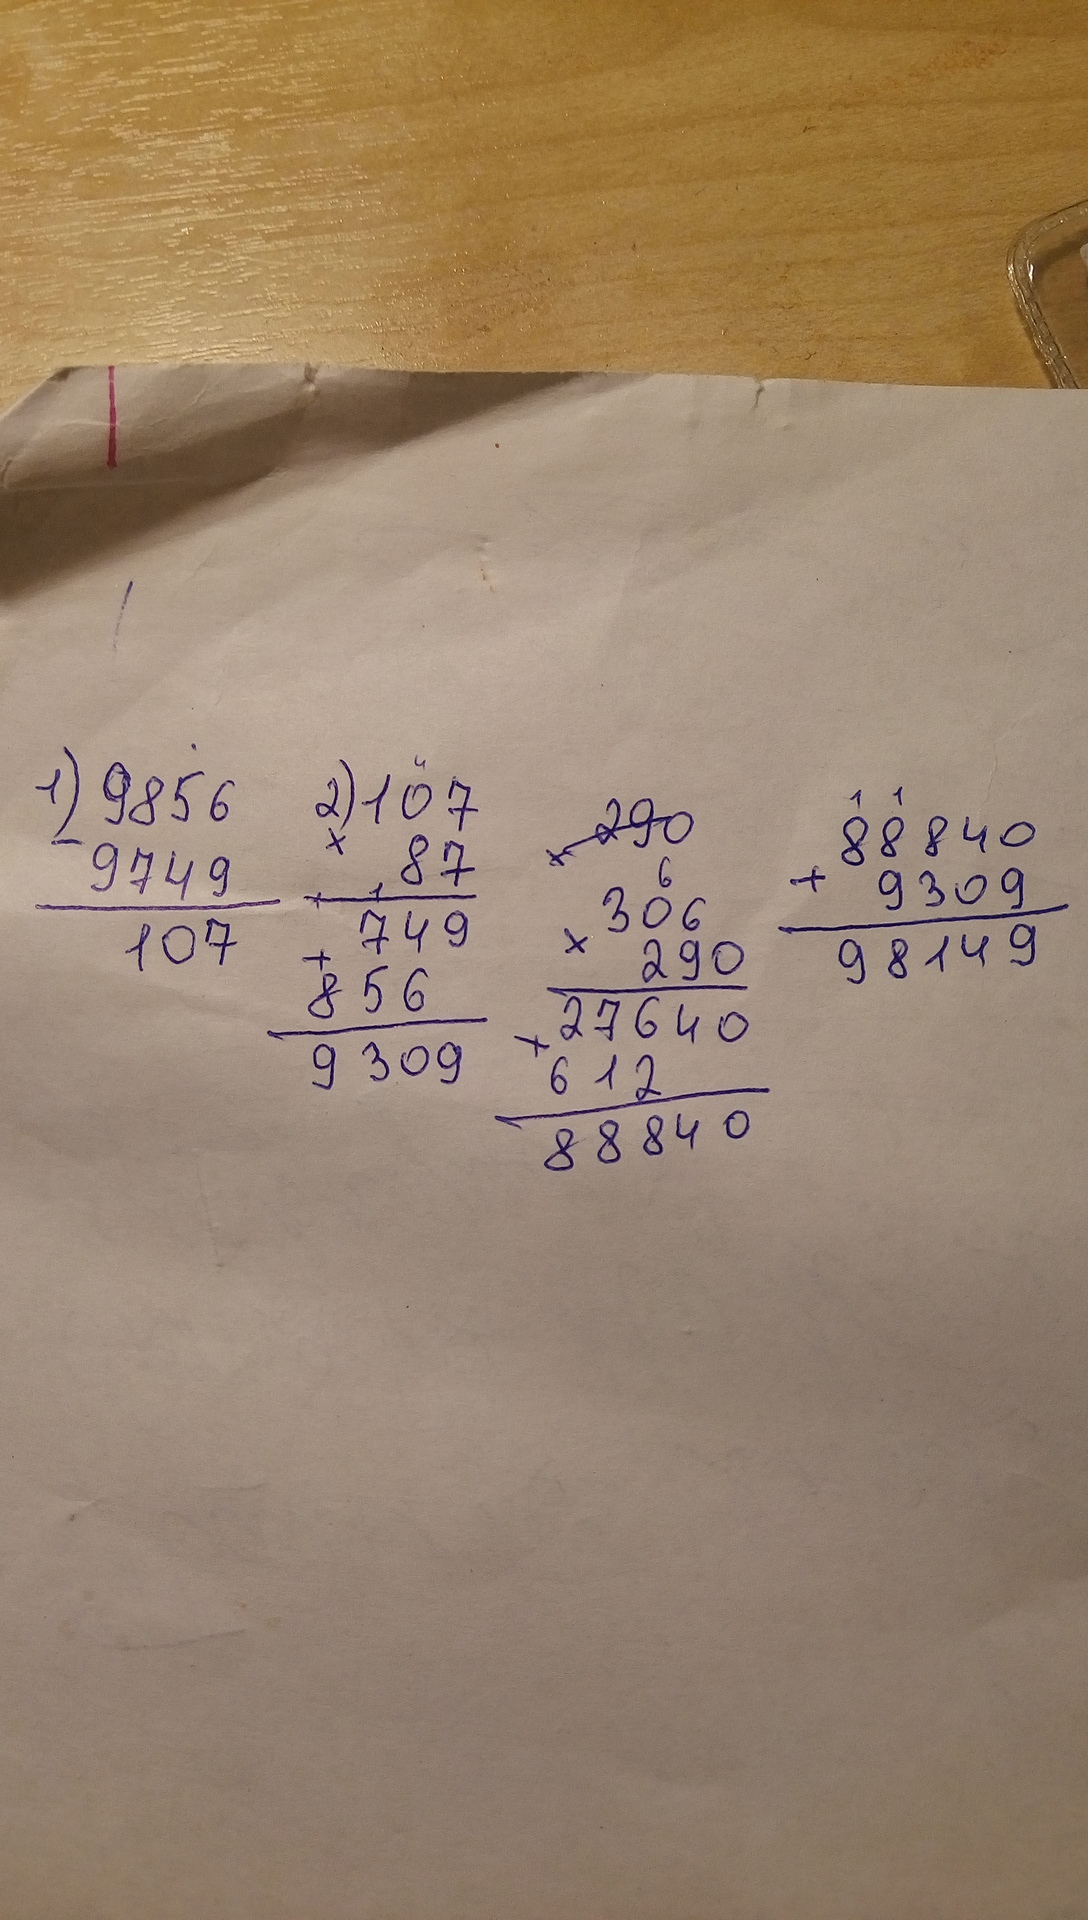 1) 9856
- 9749
107
2) 107
× 87
1
+ 749
856
9309
× 290
6
306
× 290
27640
+ 612
88840
1 1
88840
+ 9309
98149